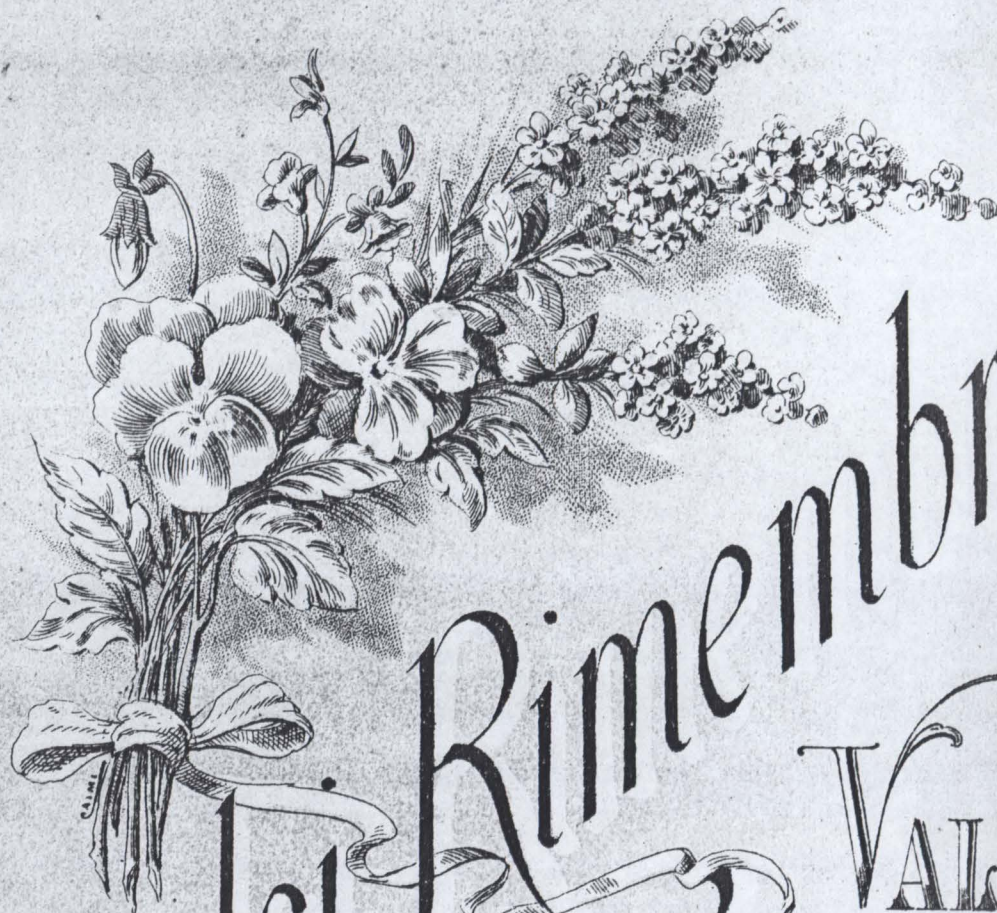 Rimembr
VAL
CAIMI